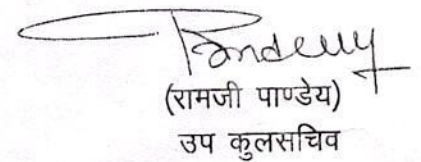 Pandeuy
(रामजी पाण्डेय)
उप कुलसचिव